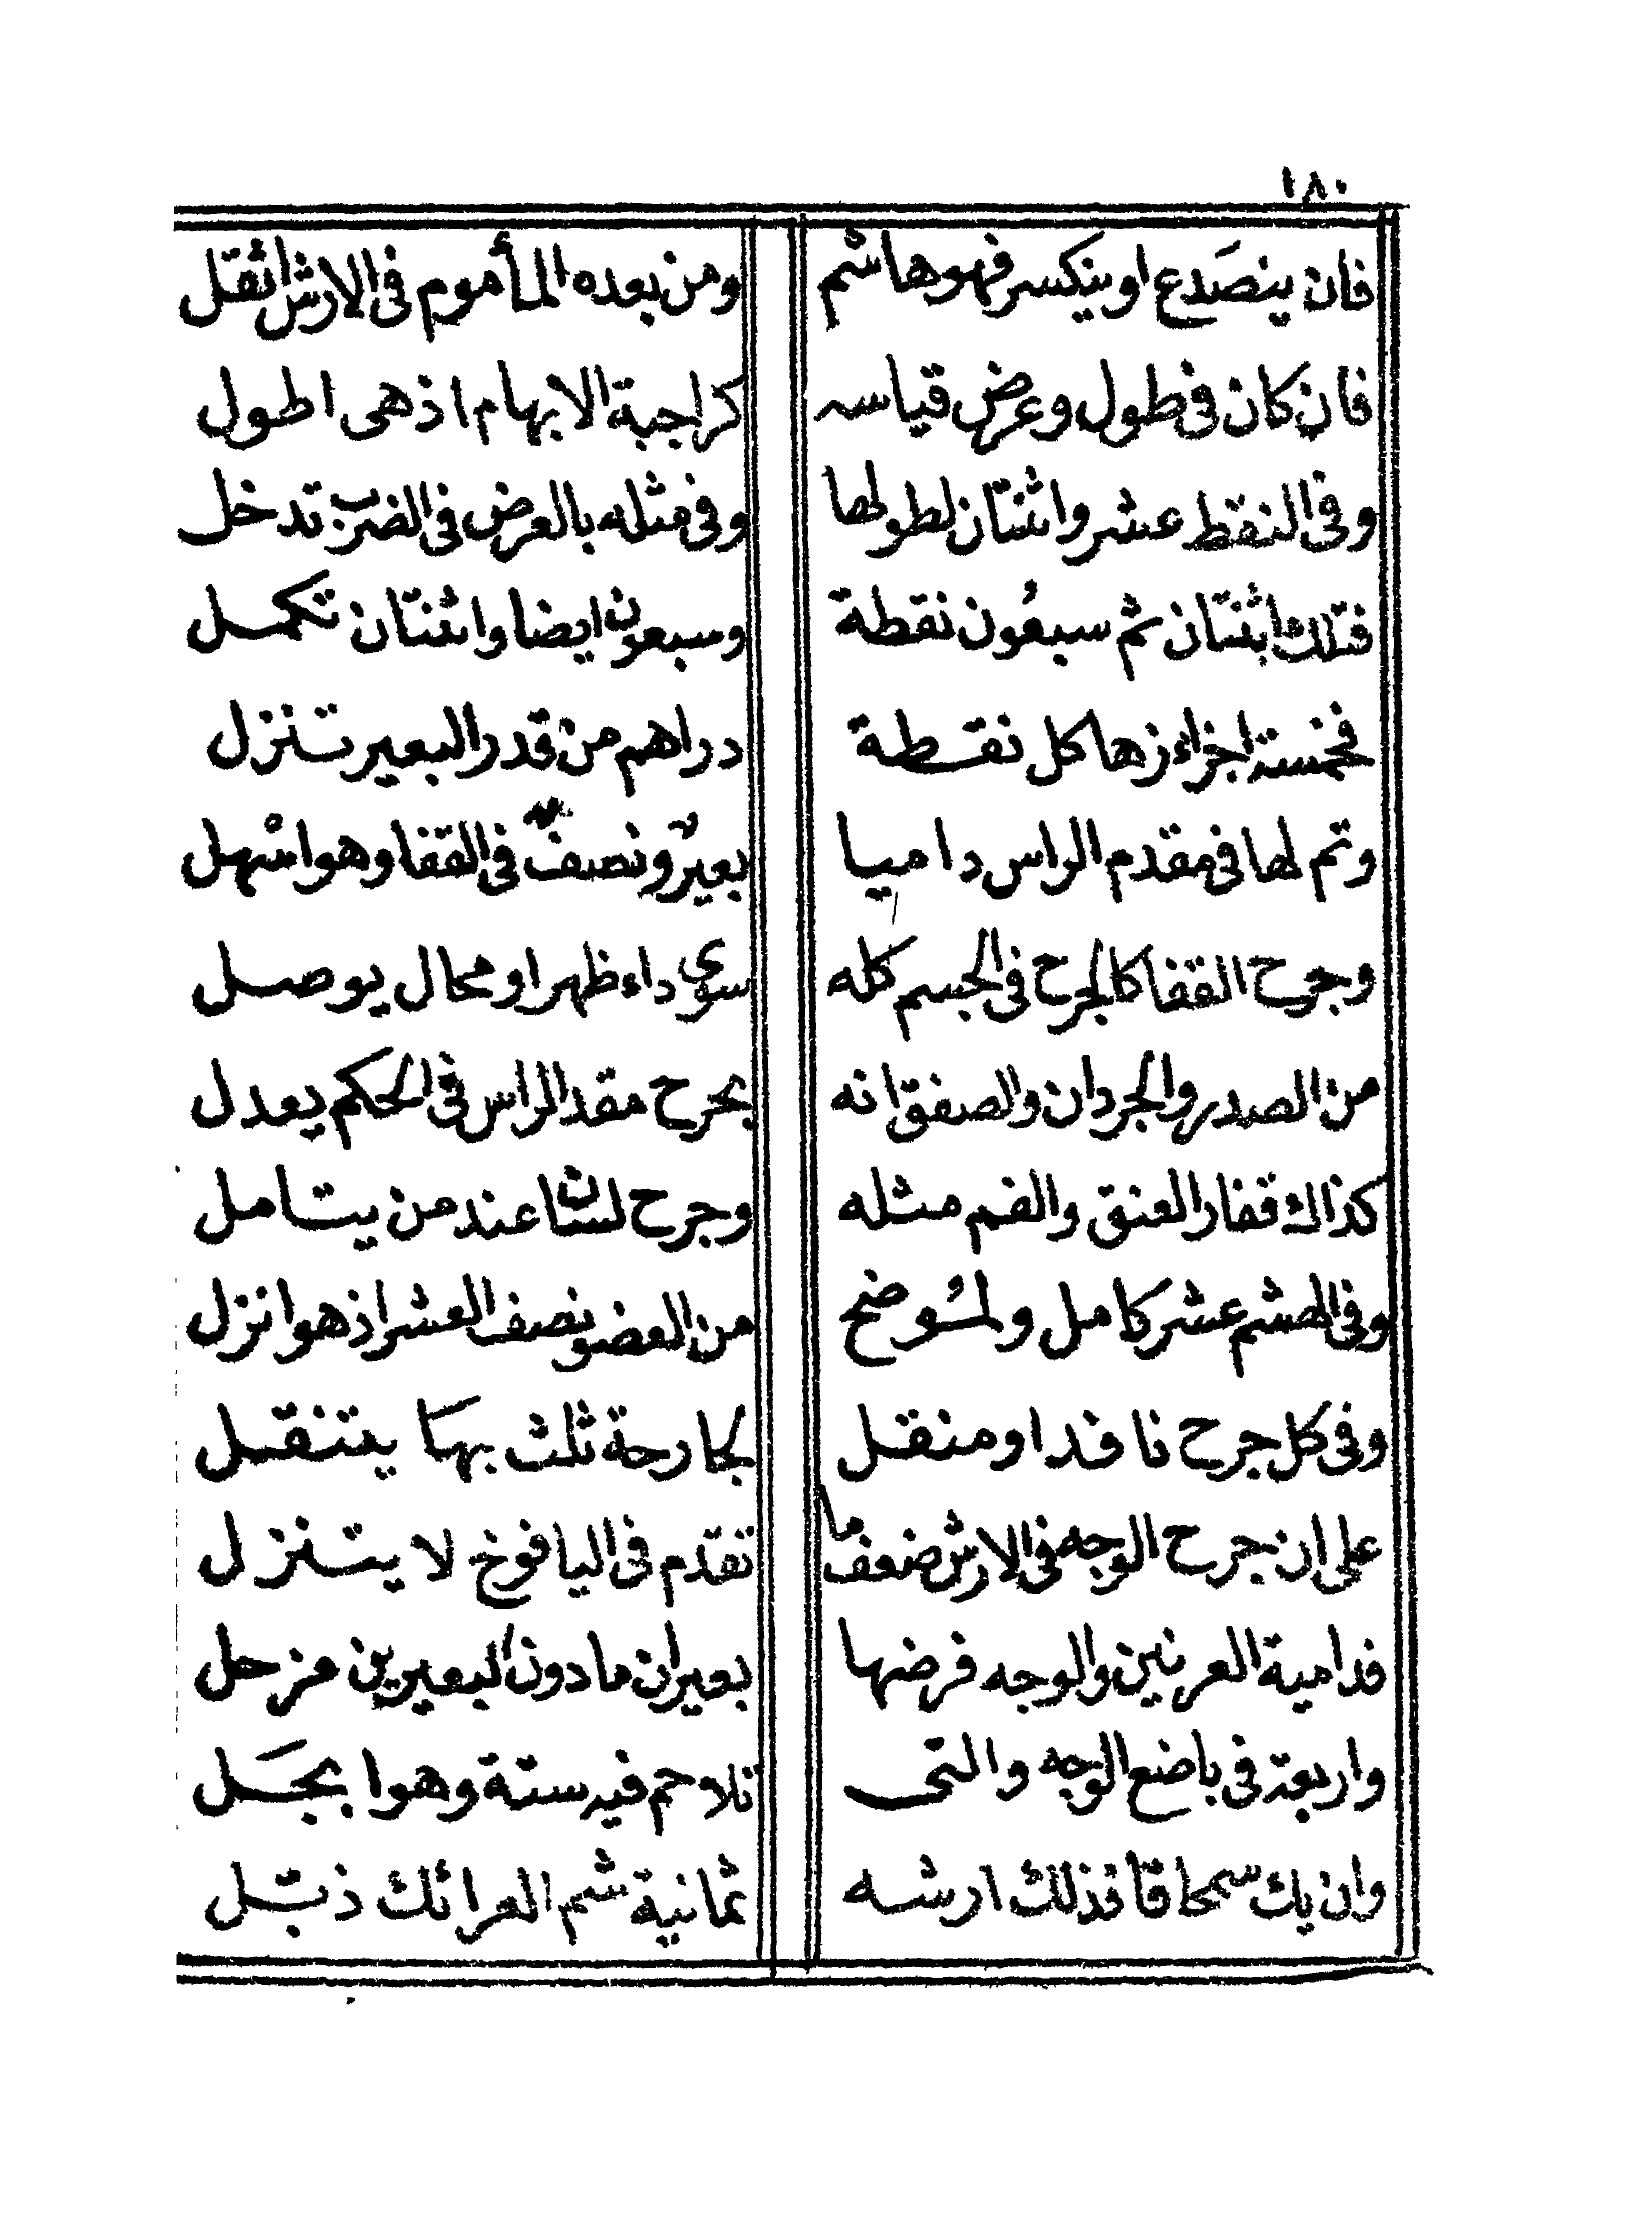 ١٨٠
فان ينصَدع او ينكسر فهو هاشم ومن بعده المأموم فى الارش اثقل
فان كان فى طول وعرض قياسه كراجبة الابهام اذ هى اطول
وفى النقط عشر واثنتان لطولها وفى مثله بالعرض فى الضرب تدخل
فتلك اثنتان ثم سبعُون نقطة وسبعون ايضا واثنتان تكمل
فخمسة اجزاء زها كل نقطة دراهم من قدر البعير تنزل
وتم لها فى مقدم الراس داميا بعير ونصف فى القفا وهو اسهل
وجرح القفا كالجرح فى الجسم كله سوى داء ظهر او محال يوصل
من الصدر والجردان والصفق انه بجرح مقد الراس فى الحكم يعدل
كذاك قفار العنق والفم مثله وجرح لسان عند من يتامل
وفى الهشم عشر كامل ولمُوضح من العضو نصف العشر اذ هو انزل
وفى كل جرح نافد او منقل لجارحة ثلث بها يتنقل
على ان جرح الوجه فى الارش ضعف ما تقدم فى اليافوخ لا يتنزل
فدامية العرنين والوجه فرضها بعيران ما دون البعيرين مزحل
واربعة فى باضع الوجه والتى تلاحم فيه ستة وهو ابجل
وان يك سمحاقا فذلك ارشه ثمانية شم العرائك ذبّل